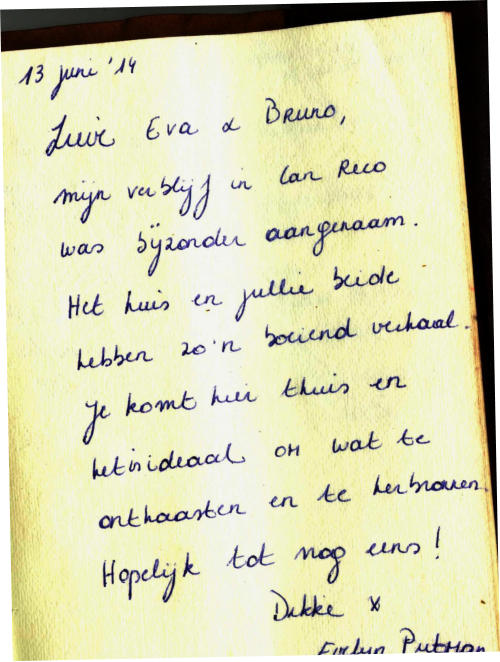 13 juni '14
Lieve Eva & Bruno,
mijn verblijf in Can Reco
was bijzonder aangenaam.
Het huis en jullie beide
hebben zo'n boeiend verhaal.
Je komt hier thuis en
het is ideaal om wat te
onthaasten en te herbronnen.
Hopelijk tot nog eens!
Dikke x
Evelyn